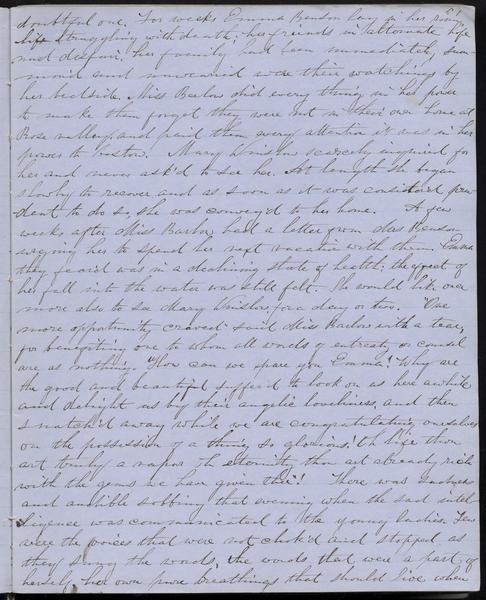 doubtful one. For weeks Emma Benson lay in her room,
life struggling with death; her friends in alternate hope
and despair. her family had been immediately sum-
mond and unwearied were their watchings by
her bedside. Miss Barlow did every thing in her power
to make them forget they were not in their own home at
Rose valley, and paid them every attention it was in her
power to bestow. Mary Winslow scarcely inquired for
her and never ask'd to see her. At length she began
slowly to recover and as soon as it was considerd pru-
dent to do so, she was convey'd to her home. A few
weeks after Miss Barlow had a letter from Mrs Benson
urging her to spend her next vacation with them. Emma
they feard was in a declining state of health; the effect of
her fall into the water was still felt. She would like once
more also to see Mary Winslow for a day or two. "One
more opportunity craved" said Miss Barlow with a tear,
for benefiting one to whom all words of entreaty or counsel
are as nothing. "How can we spare you Emma! Why are
the good and beautiful suffer'd to look on us here awhile
and delight us by their angelic loveliness, and then
snatch'd away while we are congratulating ourselves
on the possession of a thing so glorious. Oh life thou
art truly a vapor Oh eternity thou art already rich
with the gems we have given thee"! There was sadness
and audible sobbing that evening when the sad intel-
ligence was communicated to the young ladies. Few
were the voices that were not chok'd and stopped as
they sung the words, the words that were a part of
herself, her own pure breathings that should live when